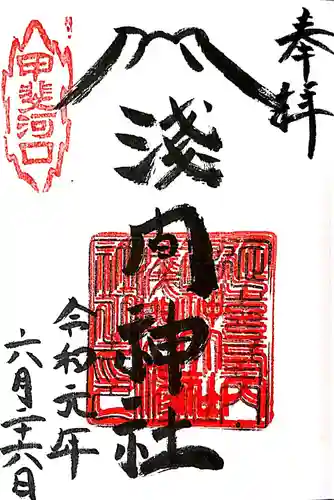 奉拝
淺間神社
甲斐河口
令和元年
六月二十六日